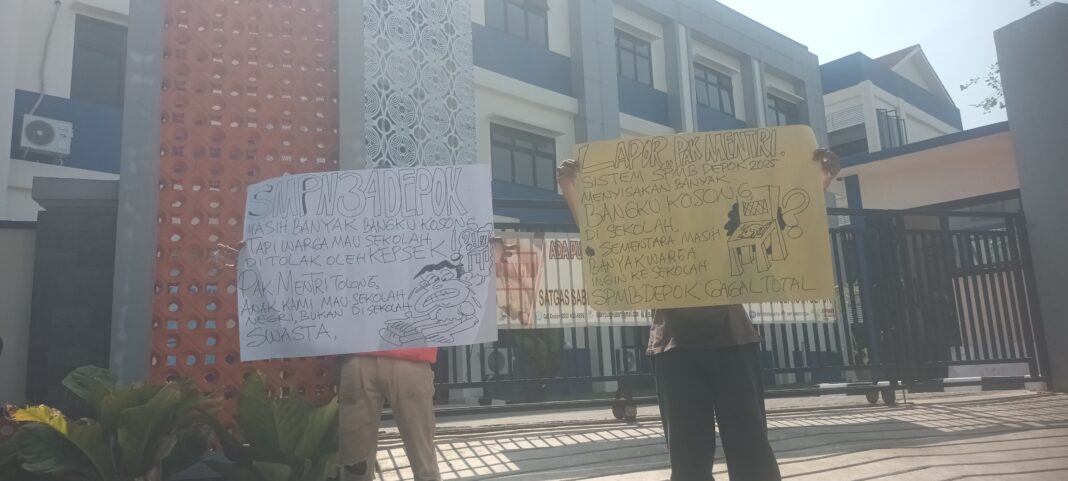 SMPN 34 DEPOK
MASIH BANYAK BANGKU KOSONG
TAPI WARGA MAU SEKOLAH
DI TOLAK OLEH KEPSEK!
PAK MENTRI TOLONG,
ANAK KAMI MAU SEKOLAH
NEGRI, BUKAN DI SEKOLAH
SWASTA,
LAPOR PAK MENTRI.
SISTEM SPMB DEPOK 2025
MENYISAKAN BANYAK
BANGKU KOSONG
DI SEKOLAH
SEMENTARA MASIH
BANYAK WARGA
INGIN KE SEKOLAH
SPMB DEPOK GAGAL TOTAL
SATGAS